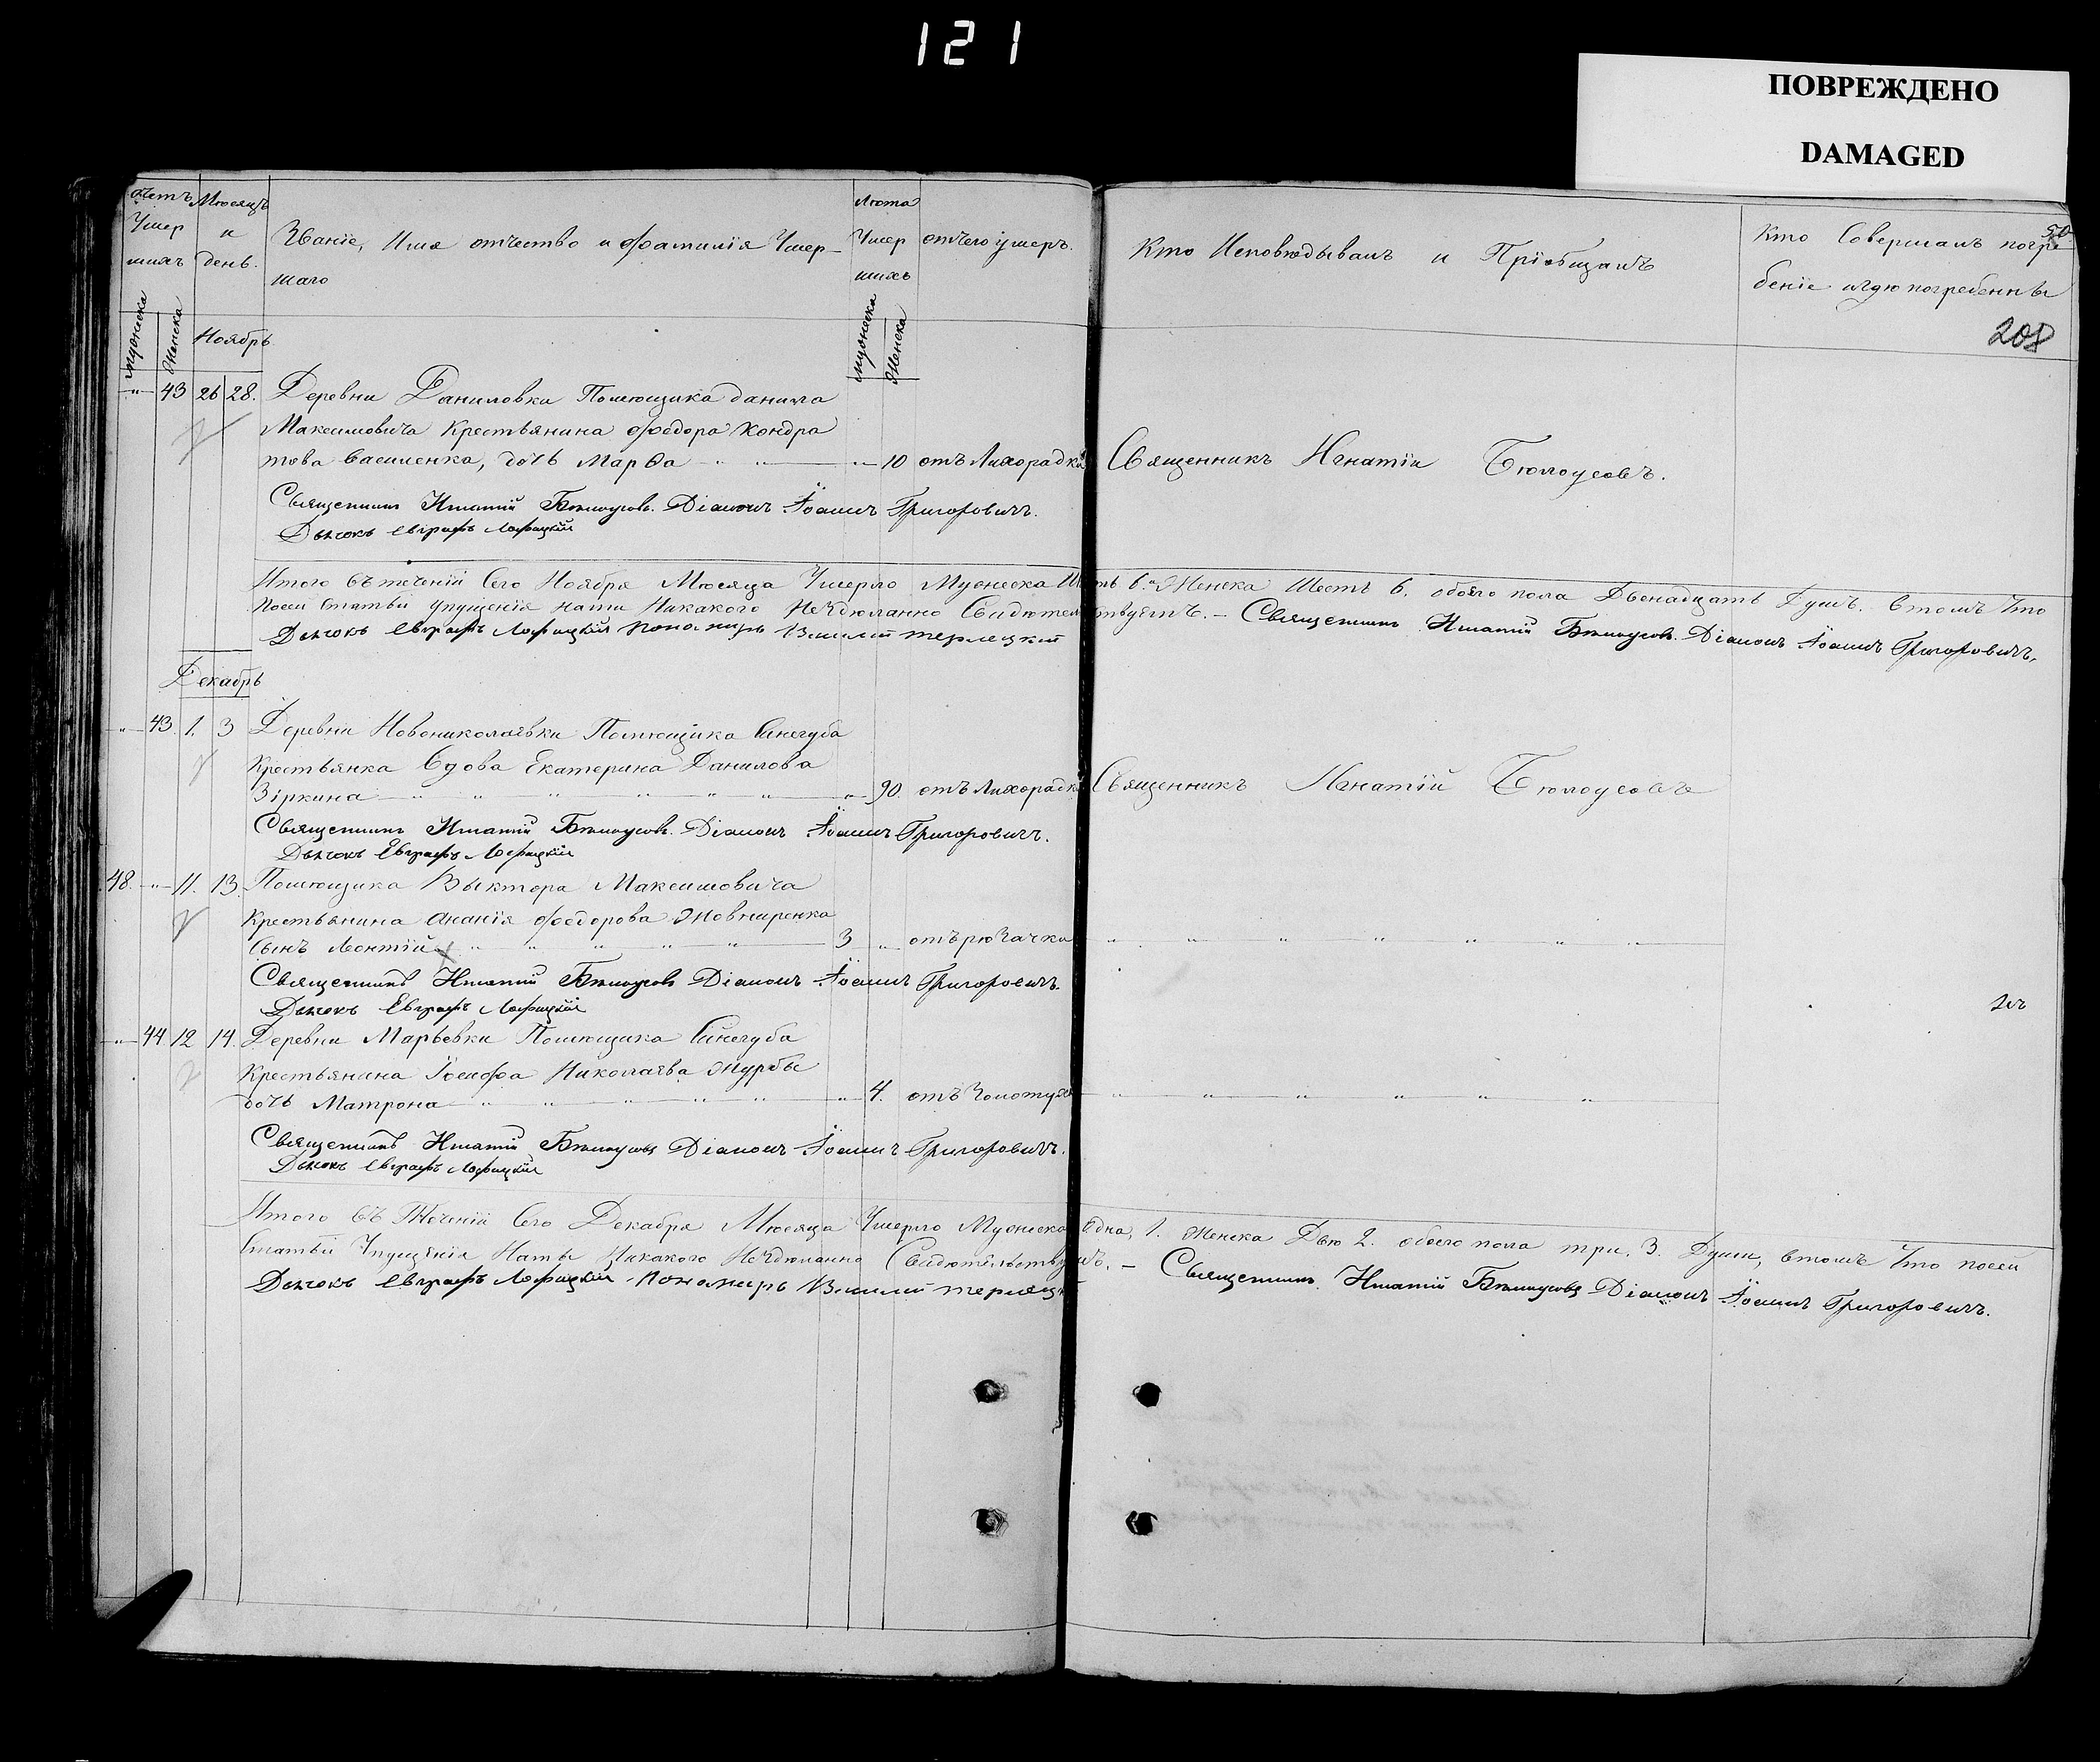 121
ПОВРЕЖДЕНО
DAMAGED
Счетъ Умер шихъ
Мѣсяцъ и день.
Званіе, Имя отчество и фамилія Умер-
шаго
Лѣта Умер шихъ
отчего умеръ.
Кто Исповѣдывалъ и Пріобщалъ
Кто Совершалъ погре
беніе игдѣ погребенны
50
208
мужеска
женска
Ноябрь
мужеска
женска
" 43 26 28. Деревни Даниловки Помѣщика данила
Максимовича Крестьянина Феодора Кондра
това Василенка, дочь Марѳа " " " 10 отъ Лихорадки Священникъ Игнатій Бѣлоусовъ.
Священникъ Игнатій Бѣлоусовъ. Діаконъ Іоаннъ Григоровичъ.
Дьячокъ Евграфъ
Итого въ теченіи Сего Ноября Мѣсяца Умерло Мужеска Шесть 6. Женска Шесть 6. обоего пола Двенадцать Душъ. втомъ Что
посей Статьи упущенія нати Никакого Нездѣланно Свидѣтельствуетъ. – Священникъ Игнатій Бѣлоусовъ. Діаконъ Іоаннъ Григоровичъ.
Дьячокъ Евграфъ Пономарь Василій Терлецкій
Декабрь
" 43. 1. 3 Деревни Новониколаевки Помѣщика Синегуба
Крестьянка Вдова Екатерина Данилова
Зіркина " " " " " " " 90. отъ Лихорадки Священникъ Игнатій Бѣлоусовъ
Священникъ Игнатій Бѣлоусовъ. Діаконъ Іоаннъ Григоровичъ.
Дьячокъ Евграфъ
48. " 11. 13. Помѣщика Виктора Максимовича
Крестьянина Ананія Феодорова Жовниренка
Сынъ Леонтій " " " " " 3 " отърѣзачки " " " " " " "
Священникъ Игнатій Бѣлоусовъ Діаконъ Іоаннъ Григоровичъ.
Дьячокъ Евграфъ
" 44 12 14. Деревни Марьевки Помѣщика Синегуба
Крестьянина Іосифа Николаева Журбы
дочь Матрона " " " " " " 4. отъ Золотухи " " " " " "
Священникъ Игнатій Бѣлоусовъ Діаконъ Іоаннъ Григоровичъ.
Дьячокъ Евграфъ
Итого въ Теченіи Сего Декабря Мѣсяца Умерло Мужеска Одна, 1. женска Двѣ 2. обоего пола три. 3. Души, втомъ Что посей
Статьи Упущенія Наты Никакого Нездѣланно Свидѣтельствуетъ. – Священникъ Игнатій Бѣлоусовъ Діаконъ Іоаннъ Григоровичъ.
Дьячокъ Евграфъ Пономарь Василій